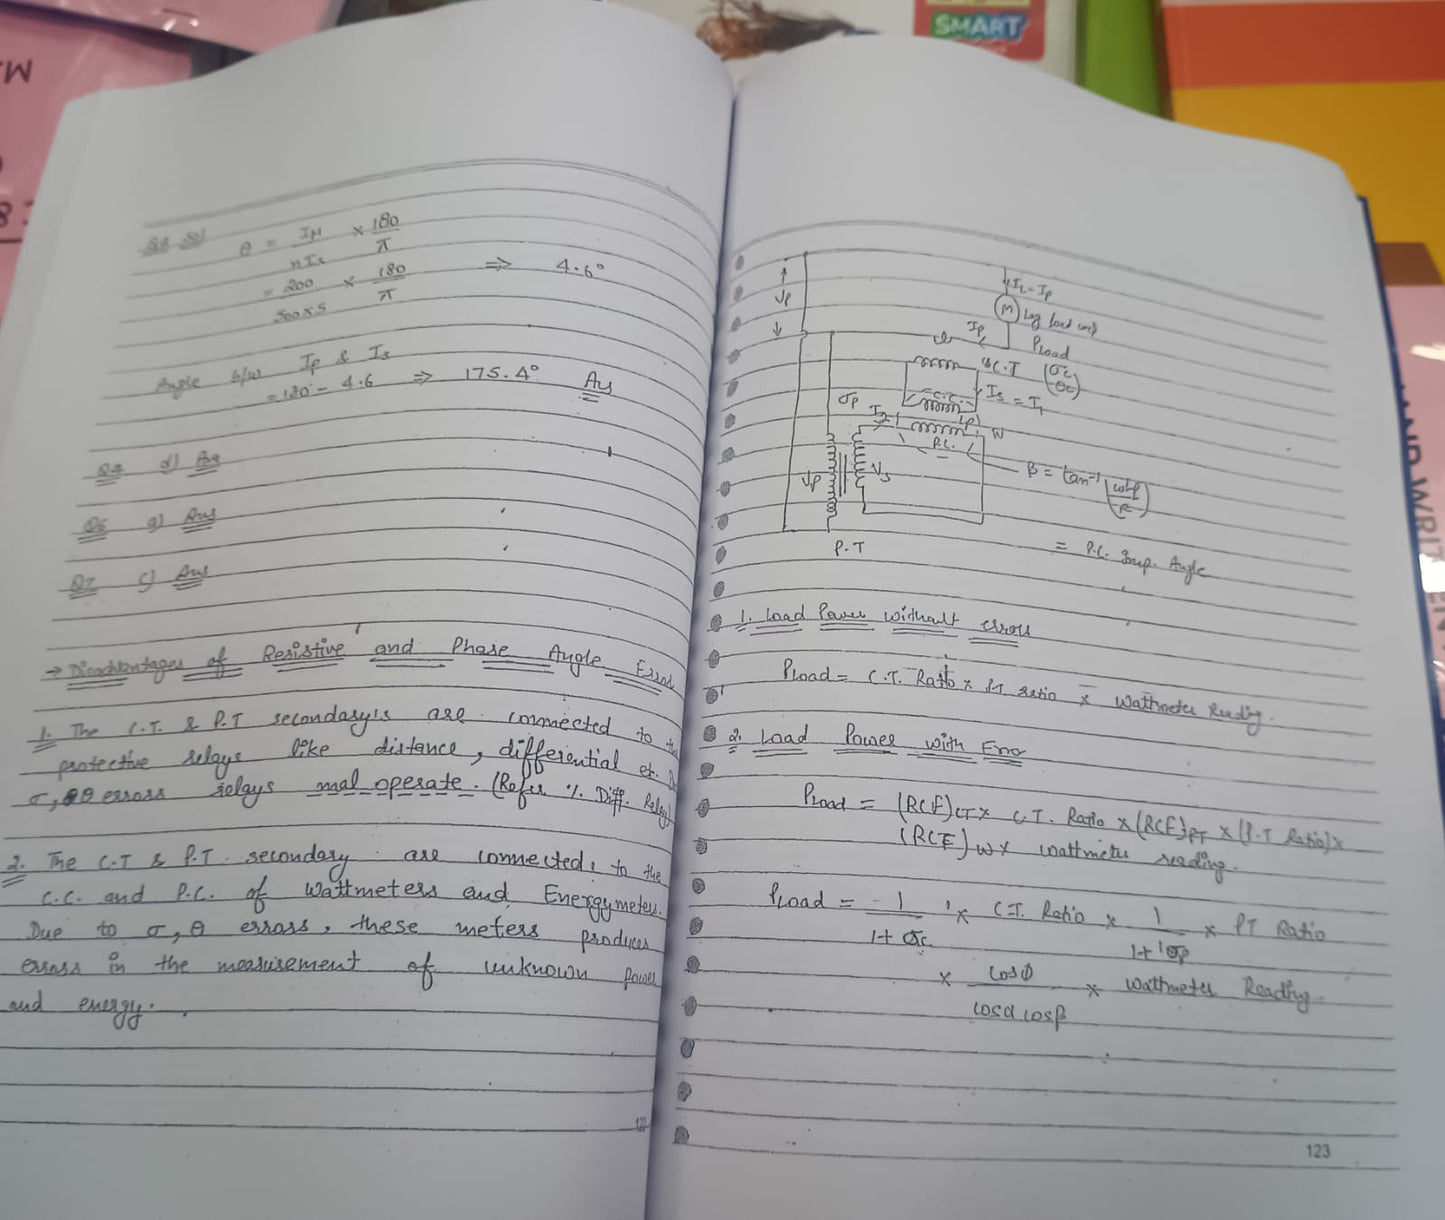 SMART
Q3 Sol
θ = IM / nIs × 180/π
= 200 / 500×5 × 180/π ⇒ 4.6°
Angle b/w Ip & Is
= 180° - 4.6 ⇒ 175.4° Ans
Q4 d) Ans
Q6 a) Ans
Q7 c) Ans
→ Disadvantages of Resistive and Phase Angle Error
1. The C.T. & P.T secondaryis are connected to the
protective relays like distance, differential et. Du
σ, θ errors relays mal operate. (Refer % Diff. Relay)
2. The C.T & P.T. secondary are connected to the
C.C. and P.C. of Wattmeters and Energymeters.
Due to σ, θ errors, these meters produces
errors in the measurement of unknown power
and energy.
Vp
IL = Ip
M Lag load
Ip
PLoad
C.T (σc / θc)
C.C. Is = I1
σp I2 W
P.C.
Vp Vs β = tan⁻¹(ωLp/R)
P.T
= P.C. Imp. Angle
1. Load Power without errors
PLoad = C.T. Ratio × PT ratio × Wattmeter Reading.
2. Load Power with Erro
PLoad = (RCF)CT × C.T. Ratio × (RCF)PT × (P.T Ratio) ×
(RCF)W × wattmeter reading.
PLoad = 1 / 1+σc × C.T. Ratio × 1 / 1+σp × PT Ratio
× cosφ / cosα cosβ × Wattmeter Reading
123